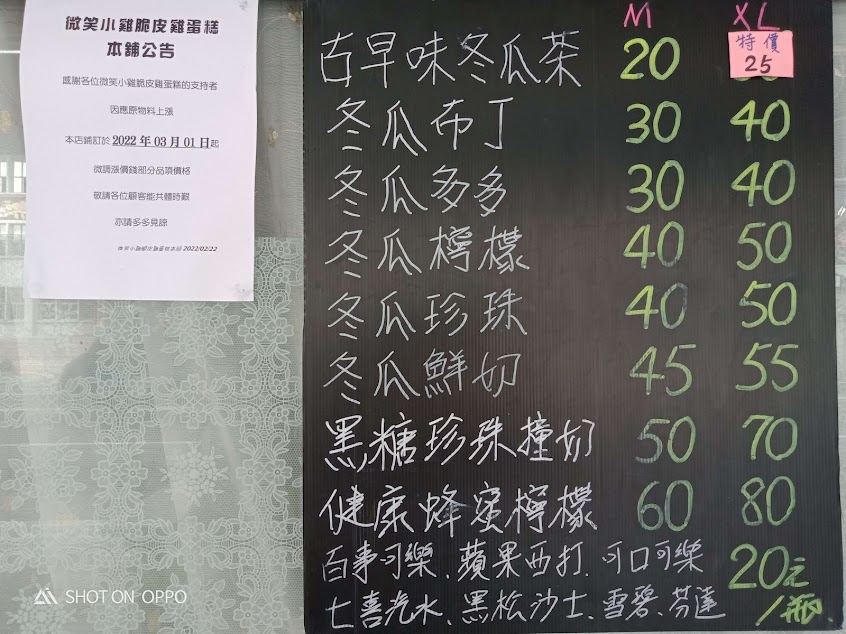 微笑小雞脆皮雞蛋糕
本鋪公告
感謝各位微笑小雞脆皮雞蛋糕的支持者
因應原物料上漲
本店鋪訂於 2022 年 03 月 01 日起
微調漲價錢部分品項價格
敬請各位顧客能共體時艱
亦請多多見諒
微笑小雞脆皮雞蛋糕本鋪 2022/02/22
M XL
古早味冬瓜茶 20 特價 25
冬瓜布丁 30 40
冬瓜多多 30 40
冬瓜檸檬 40 50
冬瓜珍珠 40 50
冬瓜鮮奶 45 55
黑糖珍珠撞奶 50 70
健康蜂蜜檸檬 60 80
百事可樂、蘋果西打、可口可樂 20元
七喜汽水、黑松沙士、雪碧、芬達 /瓶
SHOT ON OPPO